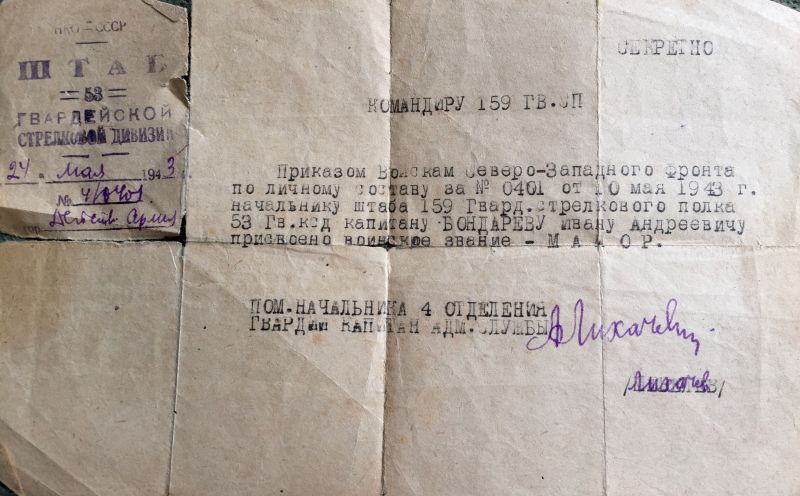 НКО - СССР
ШТАБ
=53=
ГВАРДЕЙСКОЙ
СТРЕЛКОВОЙ ДИВИЗИИ
24. Мая 1943
№ 4/0401
гор. Действ. Армия
СЕКРЕТНО
КОМАНДИРУ 159 ГВ.СП
Приказом Войскам Северо-Западного Фронта
по личному составу за № 0401 от 10 мая 1943 г.
начальнику штаба 159 Гвард.стрелкового полка
53 Гв.ксд капитану БОНДАРЕВУ Ивану Андреевичу
присвоено воинское звание - М А Й О Р.
ПОМ.НАЧАЛЬНИКА 4 ОТДЕЛЕНИЯ
ГВАРДИИ КАПИТАН АДМ.СЛУЖБЫ
АЛихачев
/Лихачев/